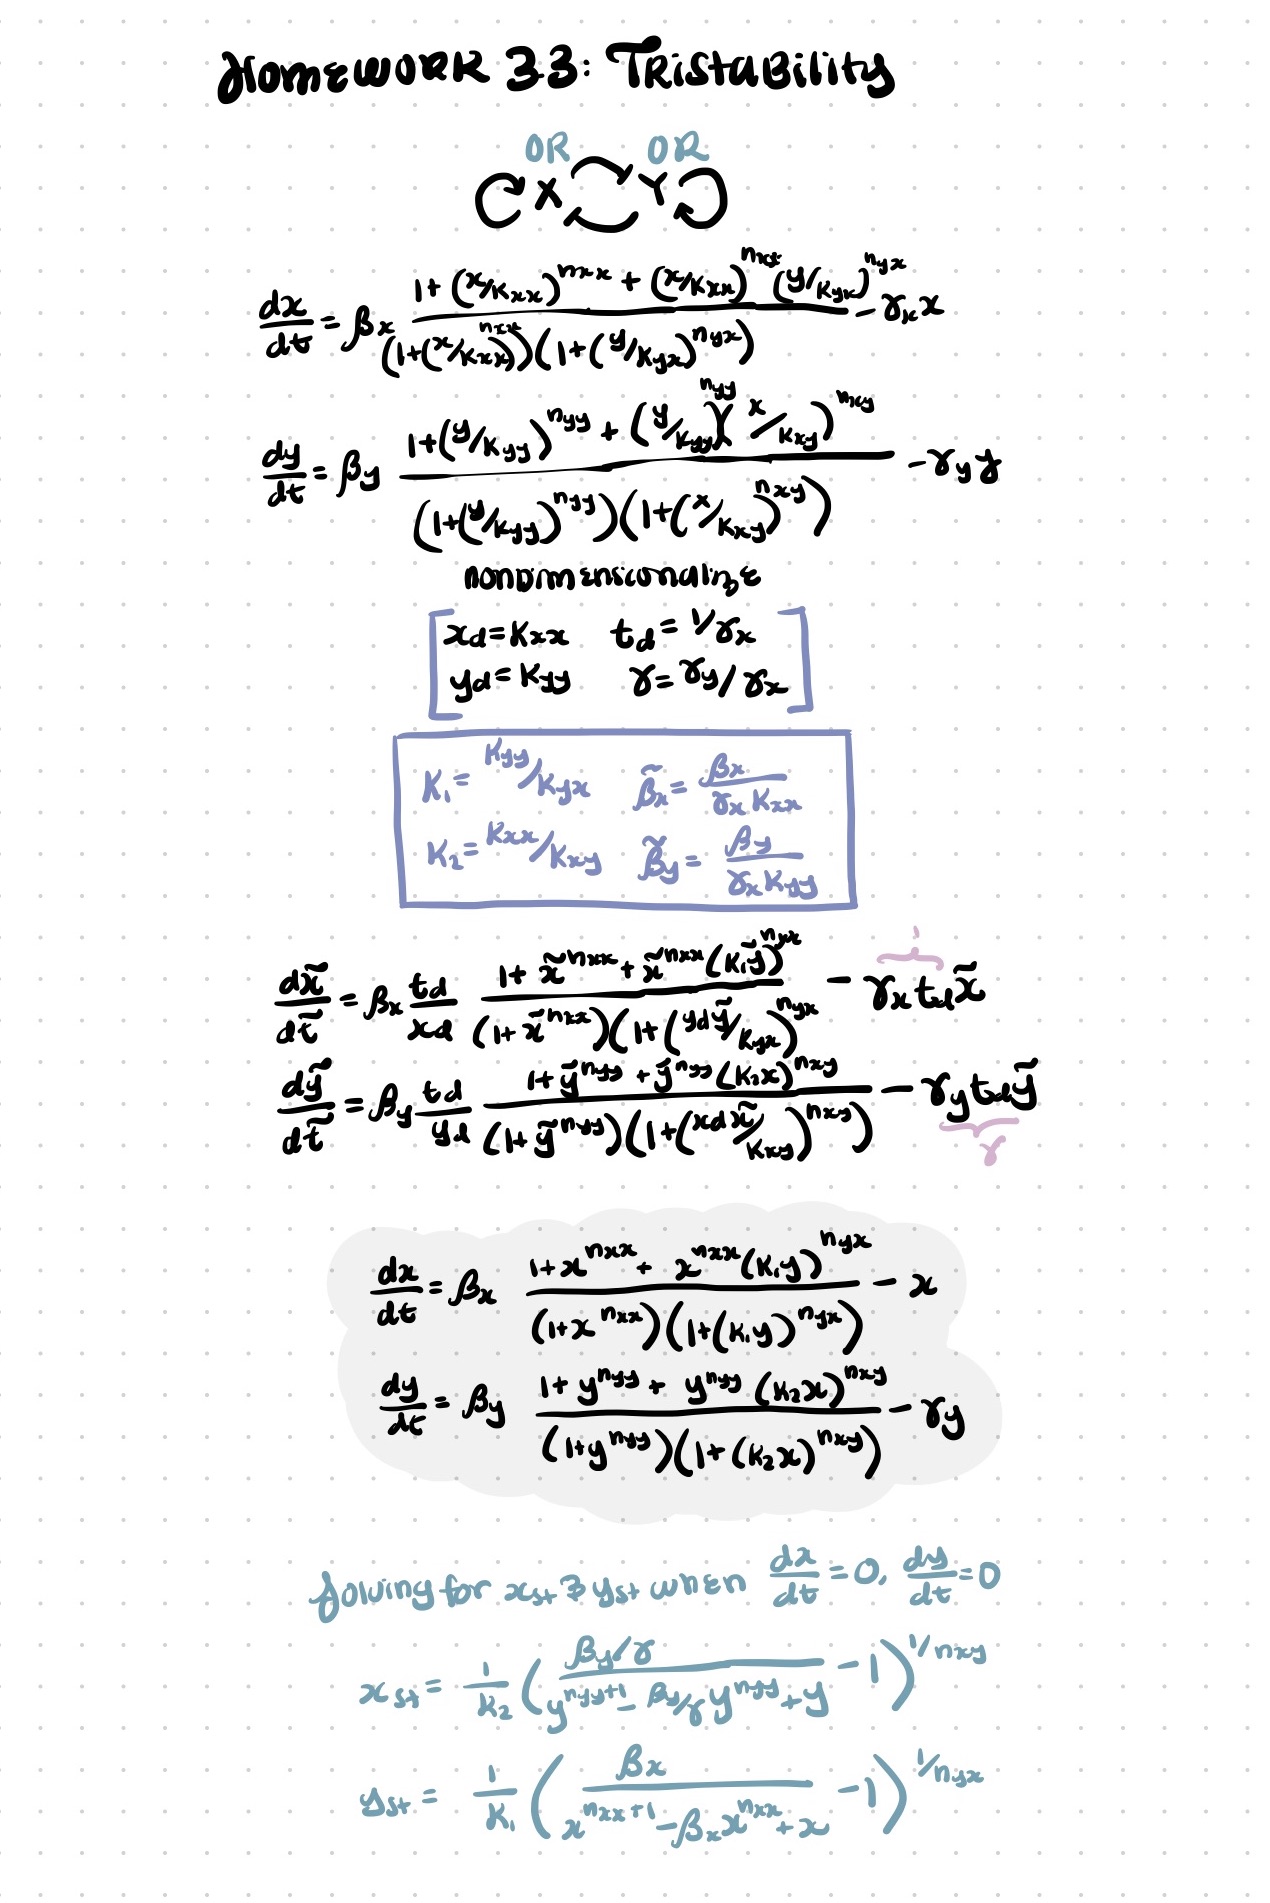 Homework 3.3: Tristability
OR OR
X Y
dx/dt = βx (1 + (x/Kxx)^nxx + (x/Kxx)^nxx (y/Kyx)^nyx) / ((1+(x/Kxx)^nxx)(1+(y/Kyx)^nyx)) - γx x
dy/dt = βy (1+(y/Kyy)^nyy + (y/Kyy)^nyy (x/Kxy)^nxy) / ((1+(y/Kyy)^nyy)(1+(x/Kxy)^nxy)) - γy y
nondimensionalize
xd = Kxx td = 1/γx
yd = Kyy γ = γy/γx
K1 = Kyy/Kyx β̃x = βx / (γx Kxx)
K2 = Kxx/Kxy β̃y = βy / (γx Kyy)
dx̃/dt̃ = βx td/xd (1 + x̃^nxx + x̃^nxx (K1ỹ)^nyx) / ((1+x̃^nxx)(1+(yd ỹ/Kyx)^nyx)) - γx td x̃
1
dỹ/dt̃ = βy td/yd (1+ỹ^nyy + ỹ^nyy (K2x)^nxy) / ((1+ỹ^nyy)(1+(xd x̃/Kxy)^nxy)) - γy td ỹ
γ
dx/dt = βx (1+x^nxx + x^nxx (K1y)^nyx) / ((1+x^nxx)(1+(K1y)^nyx)) - x
dy/dt = βy (1+y^nyy + y^nyy (K2x)^nxy) / ((1+y^nyy)(1+(K2x)^nxy)) - γy
Solving for xst & yst when dx/dt = 0, dy/dt = 0
xst = 1/K2 ((βy/γ) / (y^(nyy+1) - βy/γ y^nyy + y) - 1)^(1/nxy)
yst = 1/K1 (βx / (x^(nxx+1) - βx x^nxx + x) - 1)^(1/nyx)